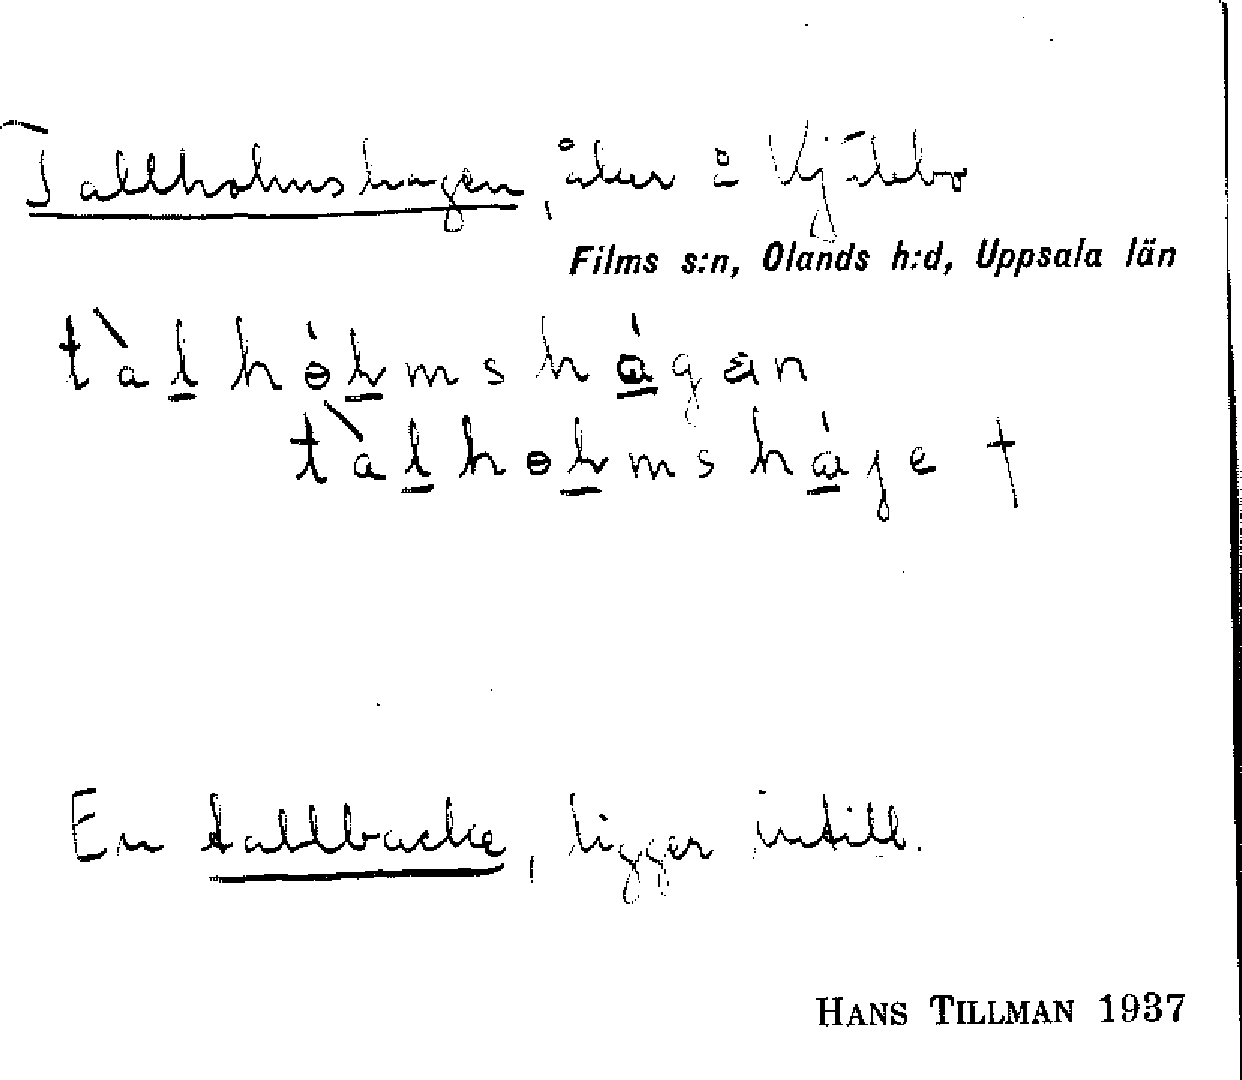 Tallholmshagen, åker å Vjäkbo
Films s:n, Olands h:d, Uppsala län
tàlhɵ́lmshágan
tàlhɵlmsháje †
En tallbacke, ligger intill.
HANS TILLMAN 1937